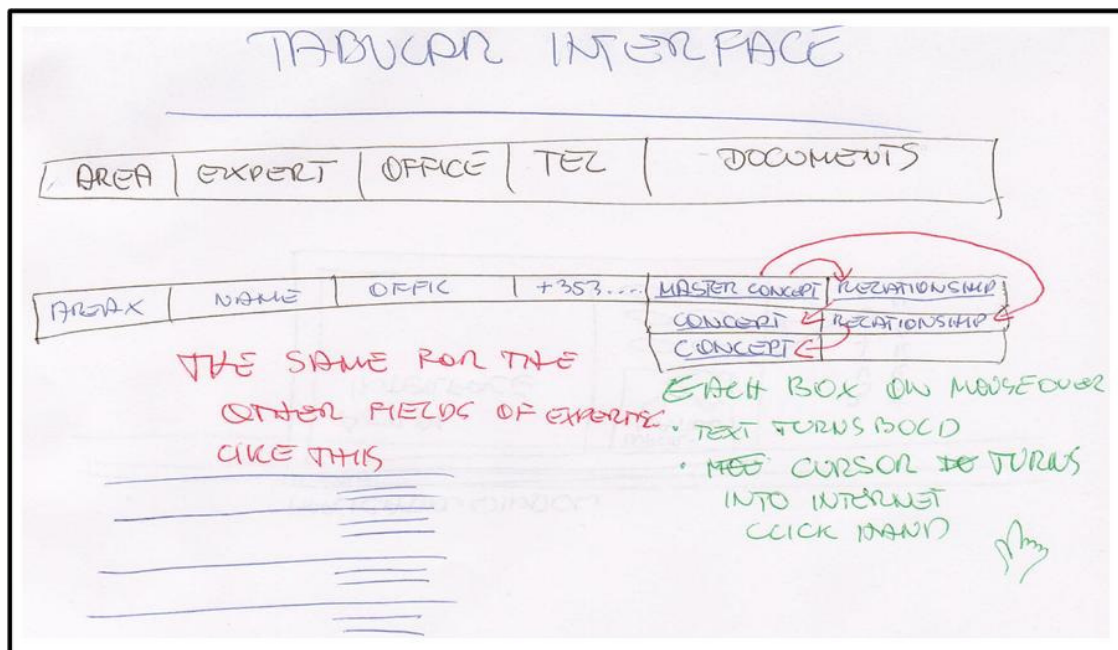 TABULAR INTERFACE
AREA EXPERT OFFICE TEL DOCUMENTS
AREAX NAME OFFIC +353.... MASTER CONCEPT RELATIONSHIP
CONCEPT RELATIONSHIP
CONCEPT
THE SAME FOR THE
OTHER FIELDS OF EXPERTISE
LIKE THIS
EACH BOX ON MOUSEOVER
· TEXT TURNS BOLD
· CURSOR TURNS
INTO INTERNET
CLICK HAND